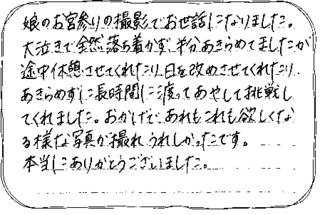 娘のお宮参りの撮影でお世話になりました。
大泣きで全然落ち着かず、半分あきらめてましたが
途中休憩させてくれたり、日を改めさせてくれたり、
あきらめずに長時間に渡ってあやして挑戦し
てくれました。おかげで、あれもこれも欲しくな
る様な写真が撮れ、うれしかったです。
本当にありがとうございました。